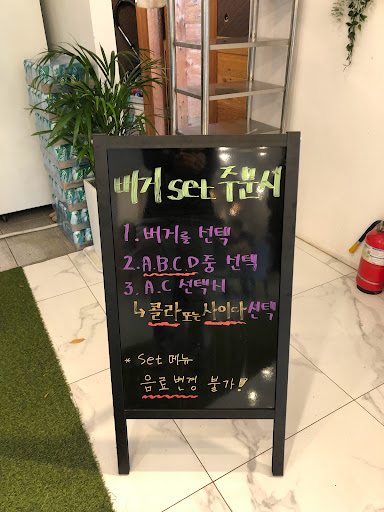 버거 set 주문시
1. 버거를 선택
2. A.B.C.D 중 선택
3. A.C 선택시
↳ 콜라 또는 사이다 선택
* Set 메뉴
음료변경 불가!